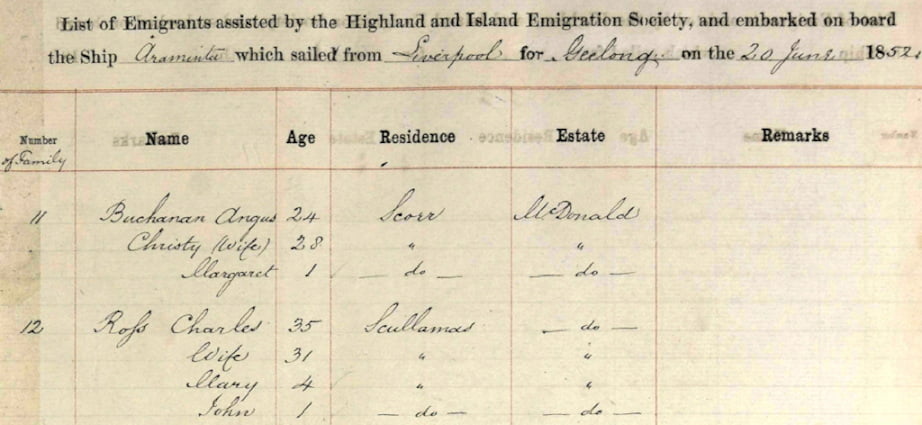 List of Emigrants assisted by the Highland and Island Emigration Society, and embarked on board
the Ship Araminta which sailed from Liverpool for Geelong on the 20 June 1852.
Number of Family Name Age Residence Estate Remarks
11 Buchanan Angus 24 Scorr McDonald
Christy (Wife) 28 " "
Margaret 1 — do — — do —
12 Ross Charles 35 Scullamas — do —
Wife 31 " "
Mary 4 " "
John 1 — do — — do —